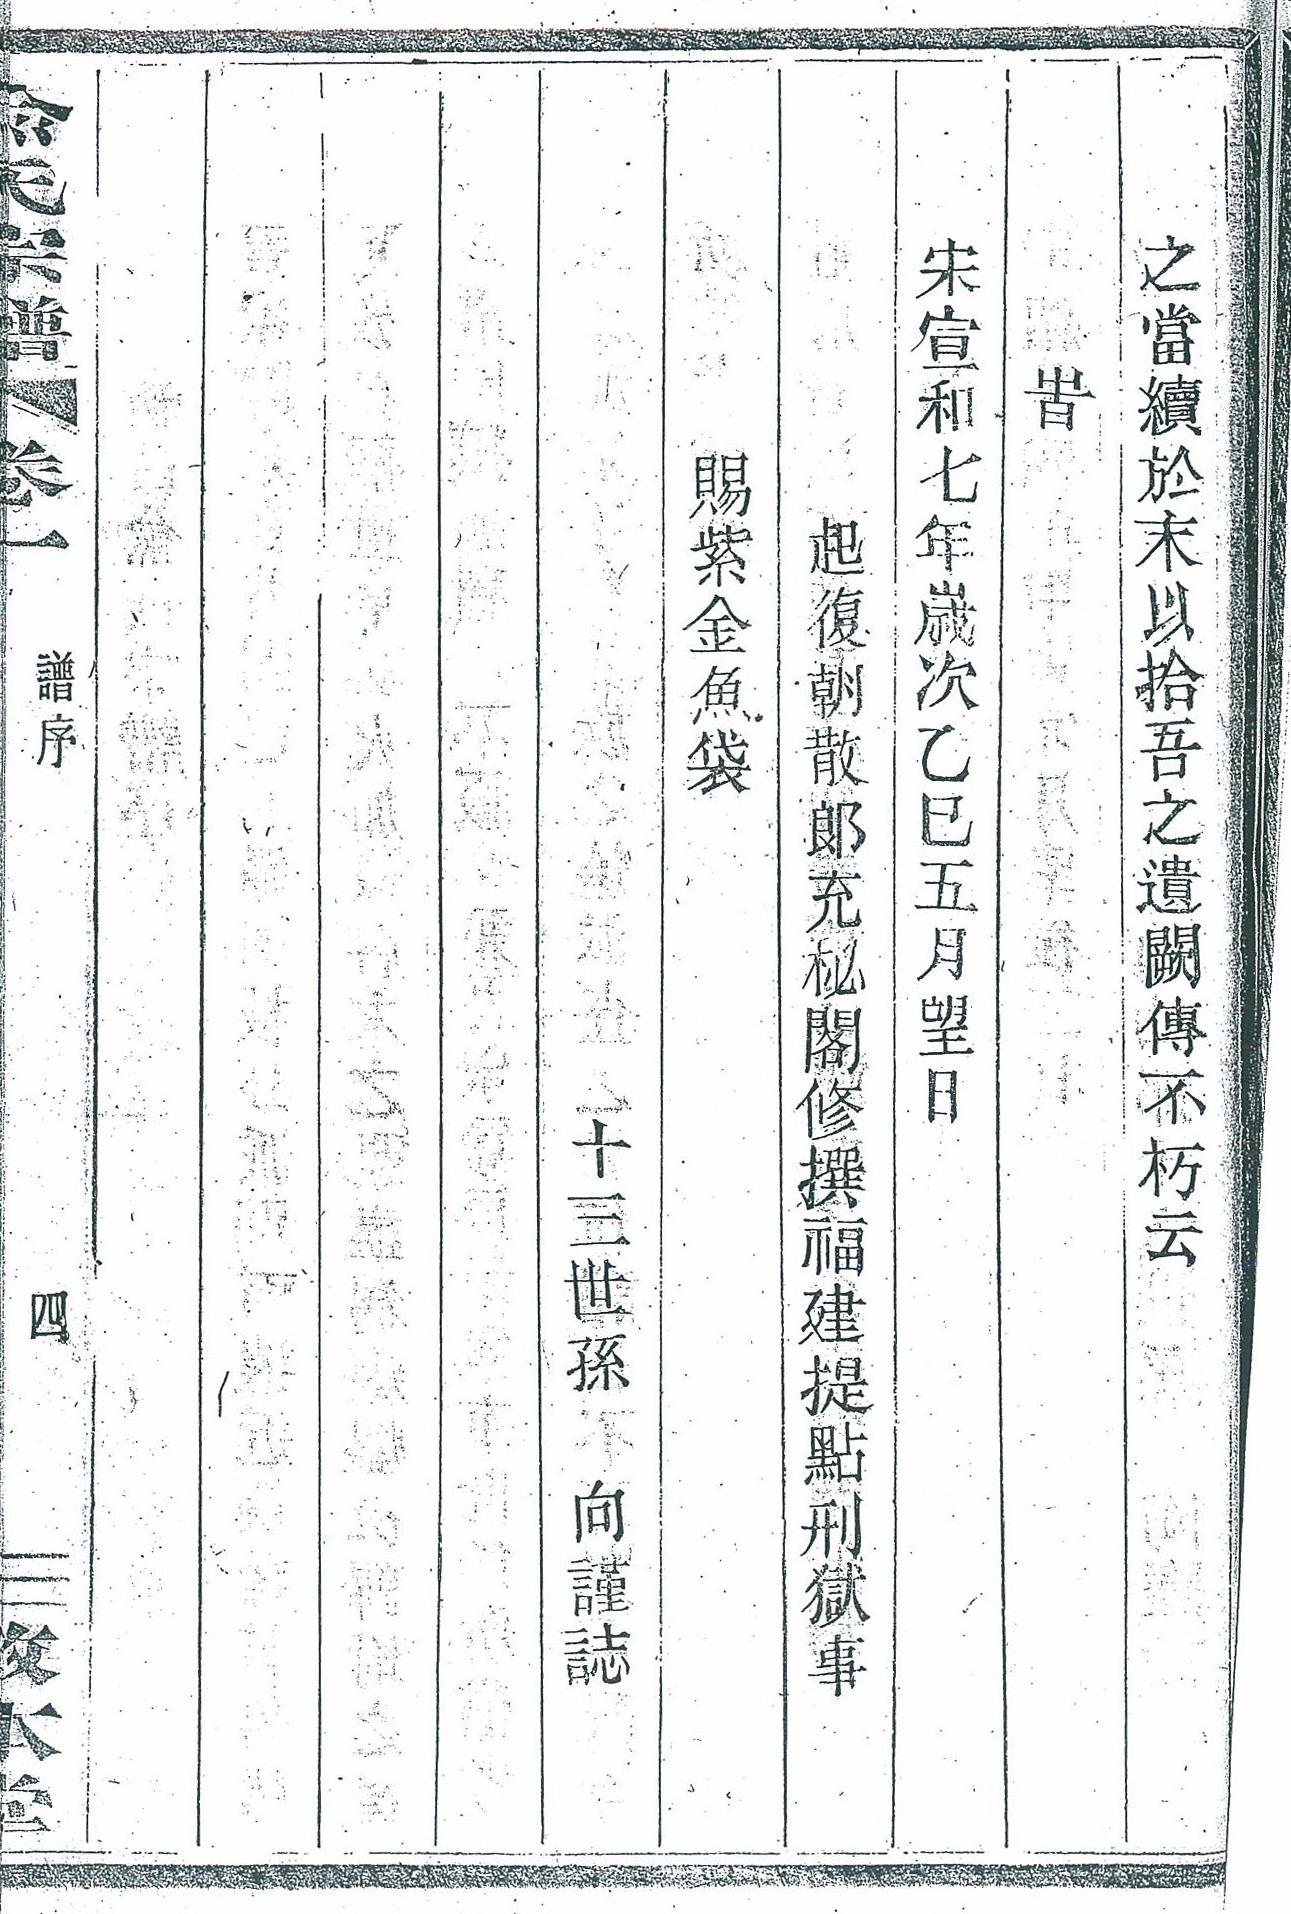 之當續於末以拾吾之遺闕傳不朽云
旹
宋宣和七年歲次乙巳五月望日
起復朝散郎充秘閣修撰福建提點刑獄事
賜紫金魚袋
十三世孫 向謹誌
氏宗譜 卷一 譜序 四 本堂